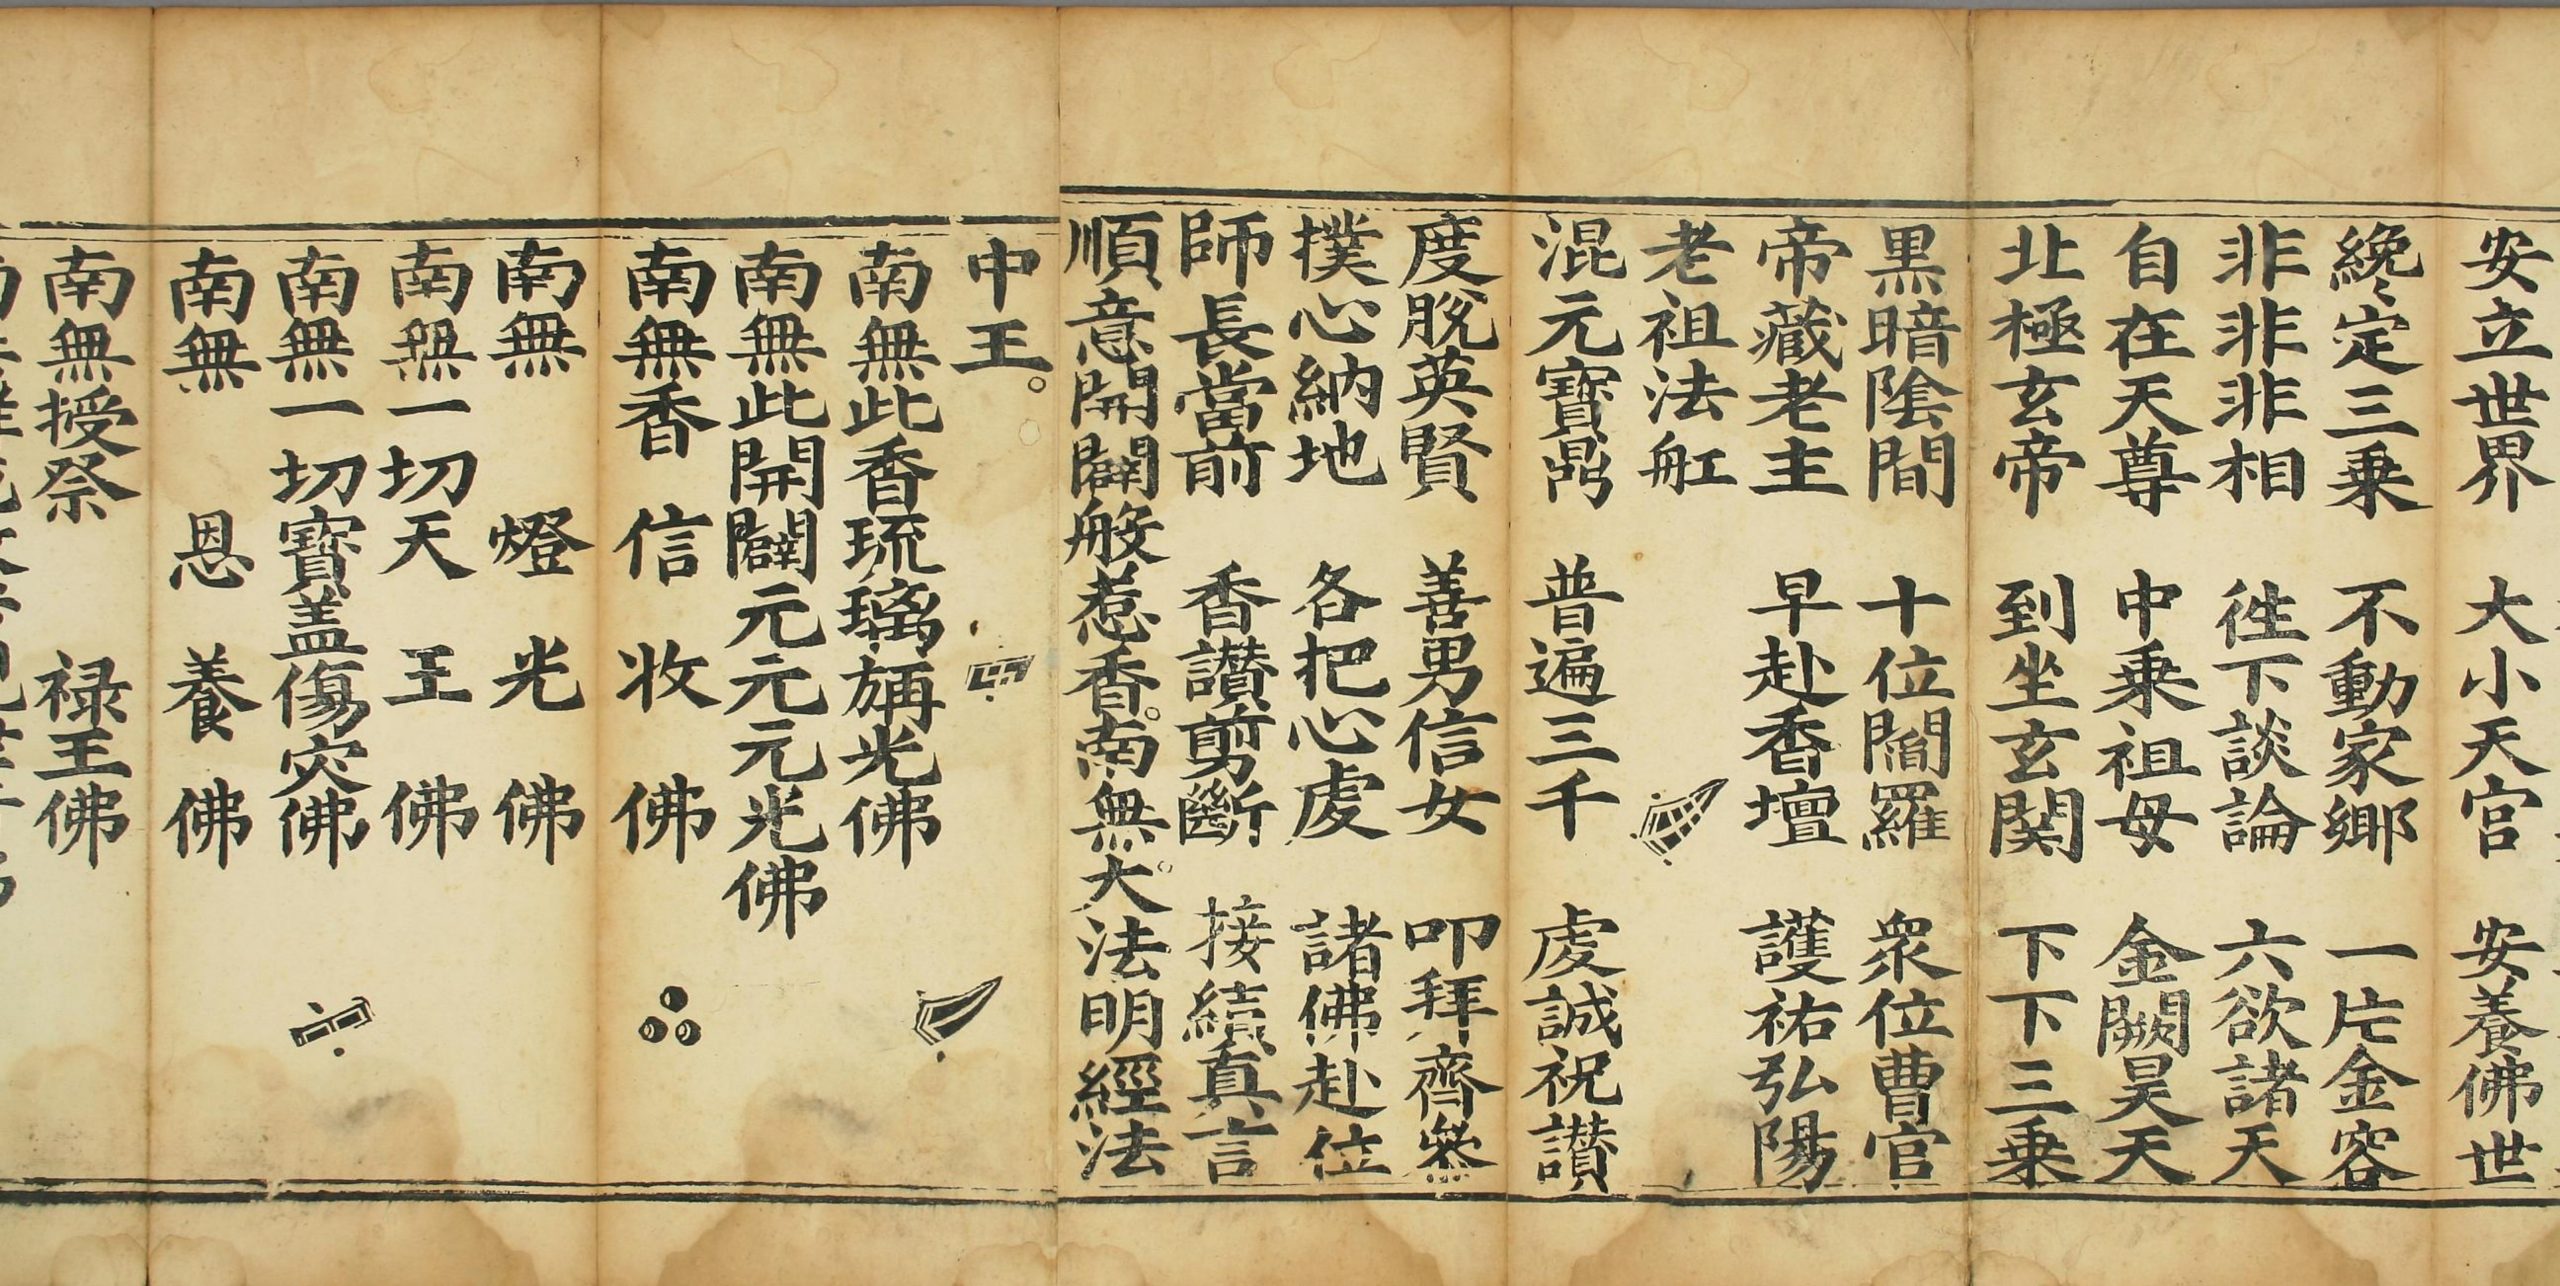 安立世界　大小天宮　安養佛世
纔定三乗　不動家鄉　一片金容
非非非相　徃下談論　六欲諸天
自在天尊　中乗祖母　金闕昊天
北極玄帝　到坐玄関　下下三乗
黒暗陰間　十位閻羅　衆位曹官
帝藏老主　早赴香壇　護祐弘陽
老祖法舡
混元寶鼎　普遍三千　虔誠祝讃
度脱英賢　善男信女　叩拜齊叅
撲心納地　各把心虔　諸佛赴位
師長當前　香讃剪斷　接續真言
順意開闢般惹香。南無。大法明經法
中王。
南無此香琉璃㫋光佛
南無此開闢元元元光佛
南無香信收佛
南無燈光佛
南無一切天王佛
南無一切寶盖傷灾佛
南無恩養佛
南無授祭禄王佛